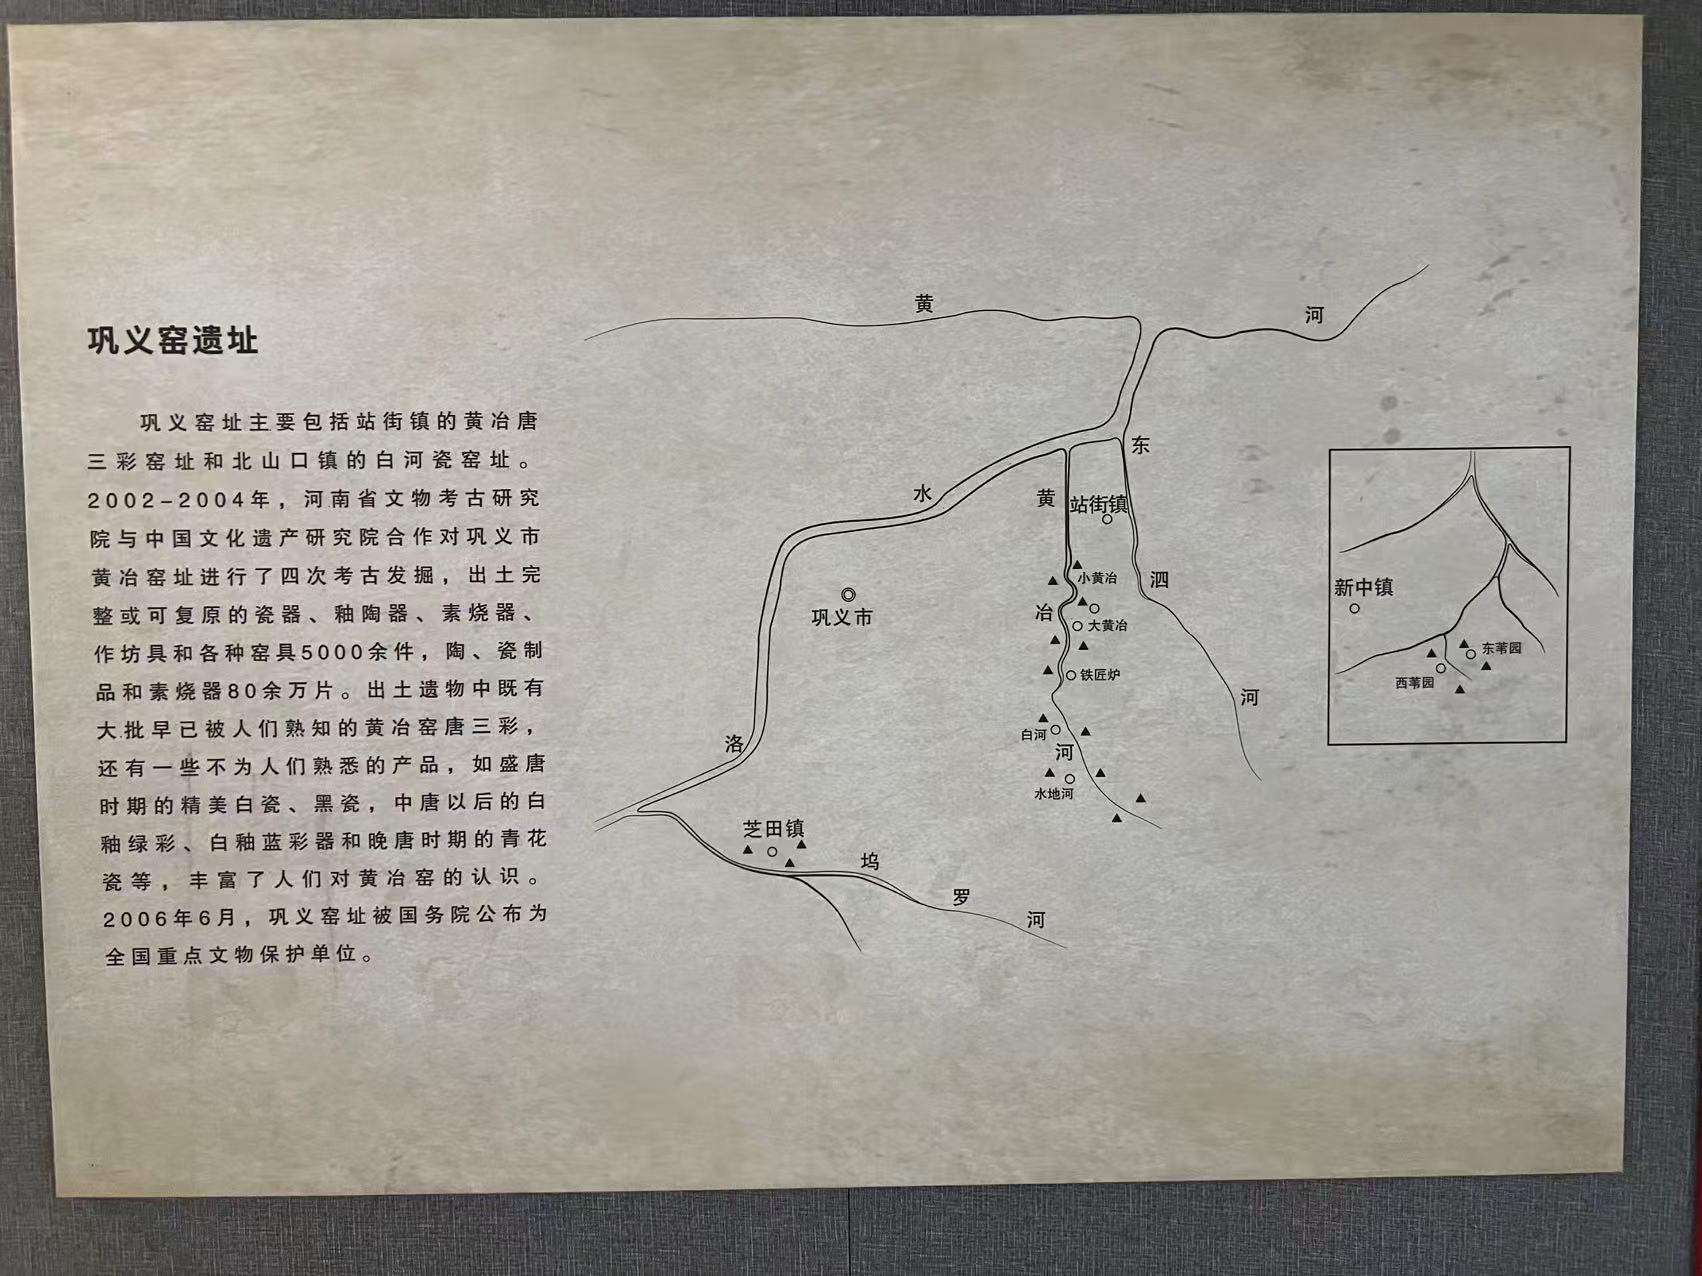 巩义窑遗址
巩义窑址主要包括站街镇的黄冶唐
三彩窑址和北山口镇的白河瓷窑址。
2002-2004年，河南省文物考古研究
院与中国文化遗产研究院合作对巩义市
黄冶窑址进行了四次考古发掘，出土完
整或可复原的瓷器、釉陶器、素烧器、
作坊具和各种窑具5000余件，陶、瓷制
品和素烧器80余万片。出土遗物中既有
大批早已被人们熟知的黄冶窑唐三彩，
还有一些不为人们熟悉的产品，如盛唐
时期的精美白瓷、黑瓷，中唐以后的白
釉绿彩、白釉蓝彩器和晚唐时期的青花
瓷等，丰富了人们对黄冶窑的认识。
2006年6月，巩义窑址被国务院公布为
全国重点文物保护单位。
黄河
洛水
东泗河
黄冶河
站街镇
小黄冶
大黄冶
铁匠炉
白河
水地河
巩义市
芝田镇
坞罗河
新中镇
东苇园
西苇园